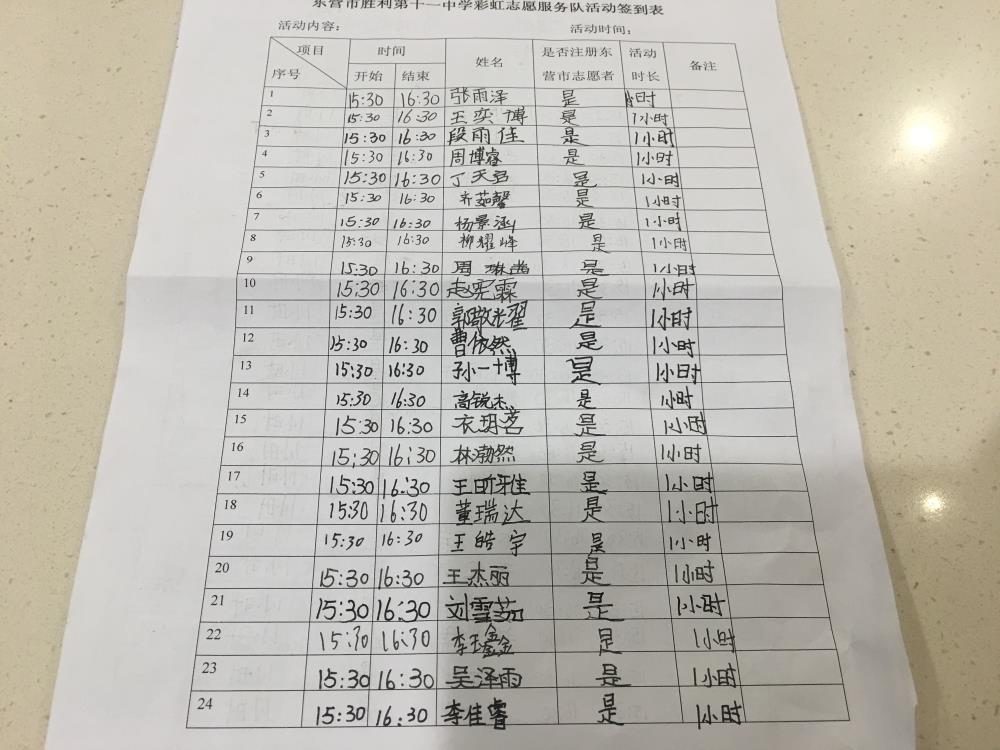 东营市胜利第十一中学彩虹志愿服务队活动签到表
活动内容： 活动时间：
项目 序号 时间 姓名 是否注册东营市志愿者 活动时长 备注
开始 结束
1 15:30 16:30 张雨泽 是 1小时
2 15:30 16:30 王奕博 是 1小时
3 15:30 16:30 段雨佳 是 1小时
4 15:30 16:30 周博睿 是 1小时
5 15:30 16:30 丁天 是 1小时
6 15:30 16:30 齐茹馨 是 1小时
7 15:30 16:30 杨景涵 是 1小时
8 15:30 16:30 柳耀峰 是 1小时
9 15:30 16:30 周琳 是 1小时
10 15:30 16:30 赵宪霖 是 1小时
11 15:30 16:30 郭敬光翟 是 1小时
12 15:30 16:30 曹依然 是 1小时
13 15:30 16:30 孙一博 是 1小时
14 15:30 16:30 高锐杰 是 1小时
15 15:30 16:30 衣玥茗 是 1小时
16 15:30 16:30 林渤然 是 1小时
17 15:30 16:30 王昕雅 是 1小时
18 15:30 16:30 董瑞达 是 1小时
19 15:30 16:30 王皓宇 是 1小时
20 15:30 16:30 王杰丽 是 1小时
21 15:30 16:30 刘雪茹 是 1小时
22 15:30 16:30 李鑫 是 1小时
23 15:30 16:30 吴泽雨 是 1小时
24 15:30 16:30 李佳睿 是 1小时